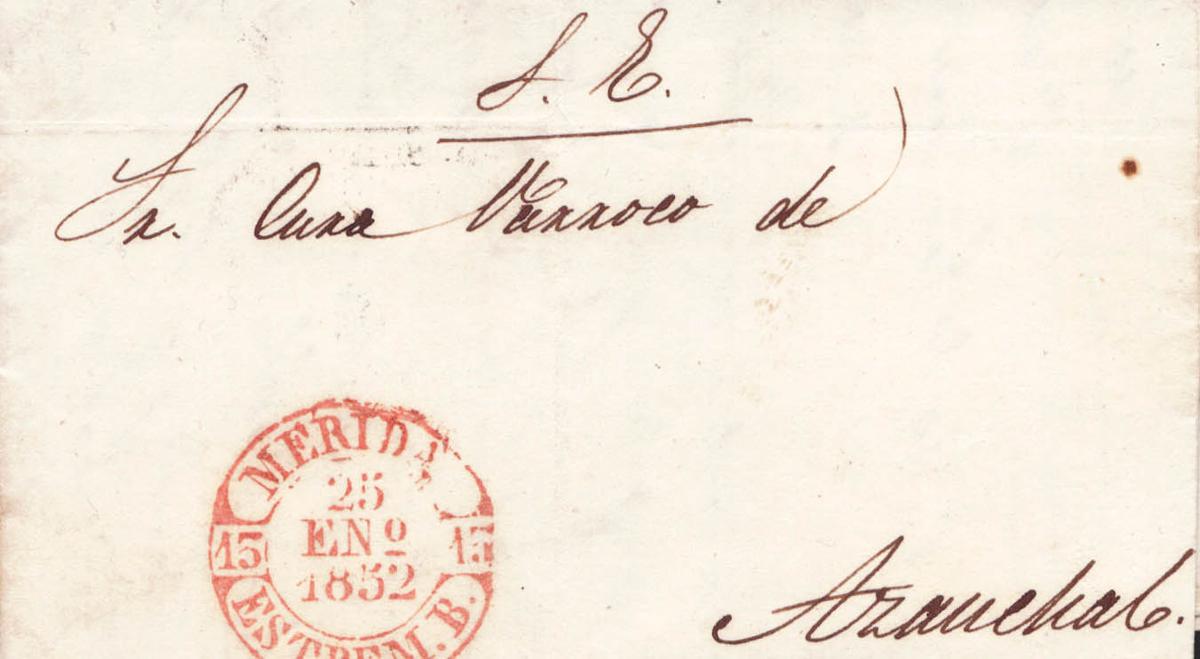 S. E.
Sr. Cura Parroco de
MERIDA
25
ENº
1852
15
15
ESTREM. B.
Aranchal.